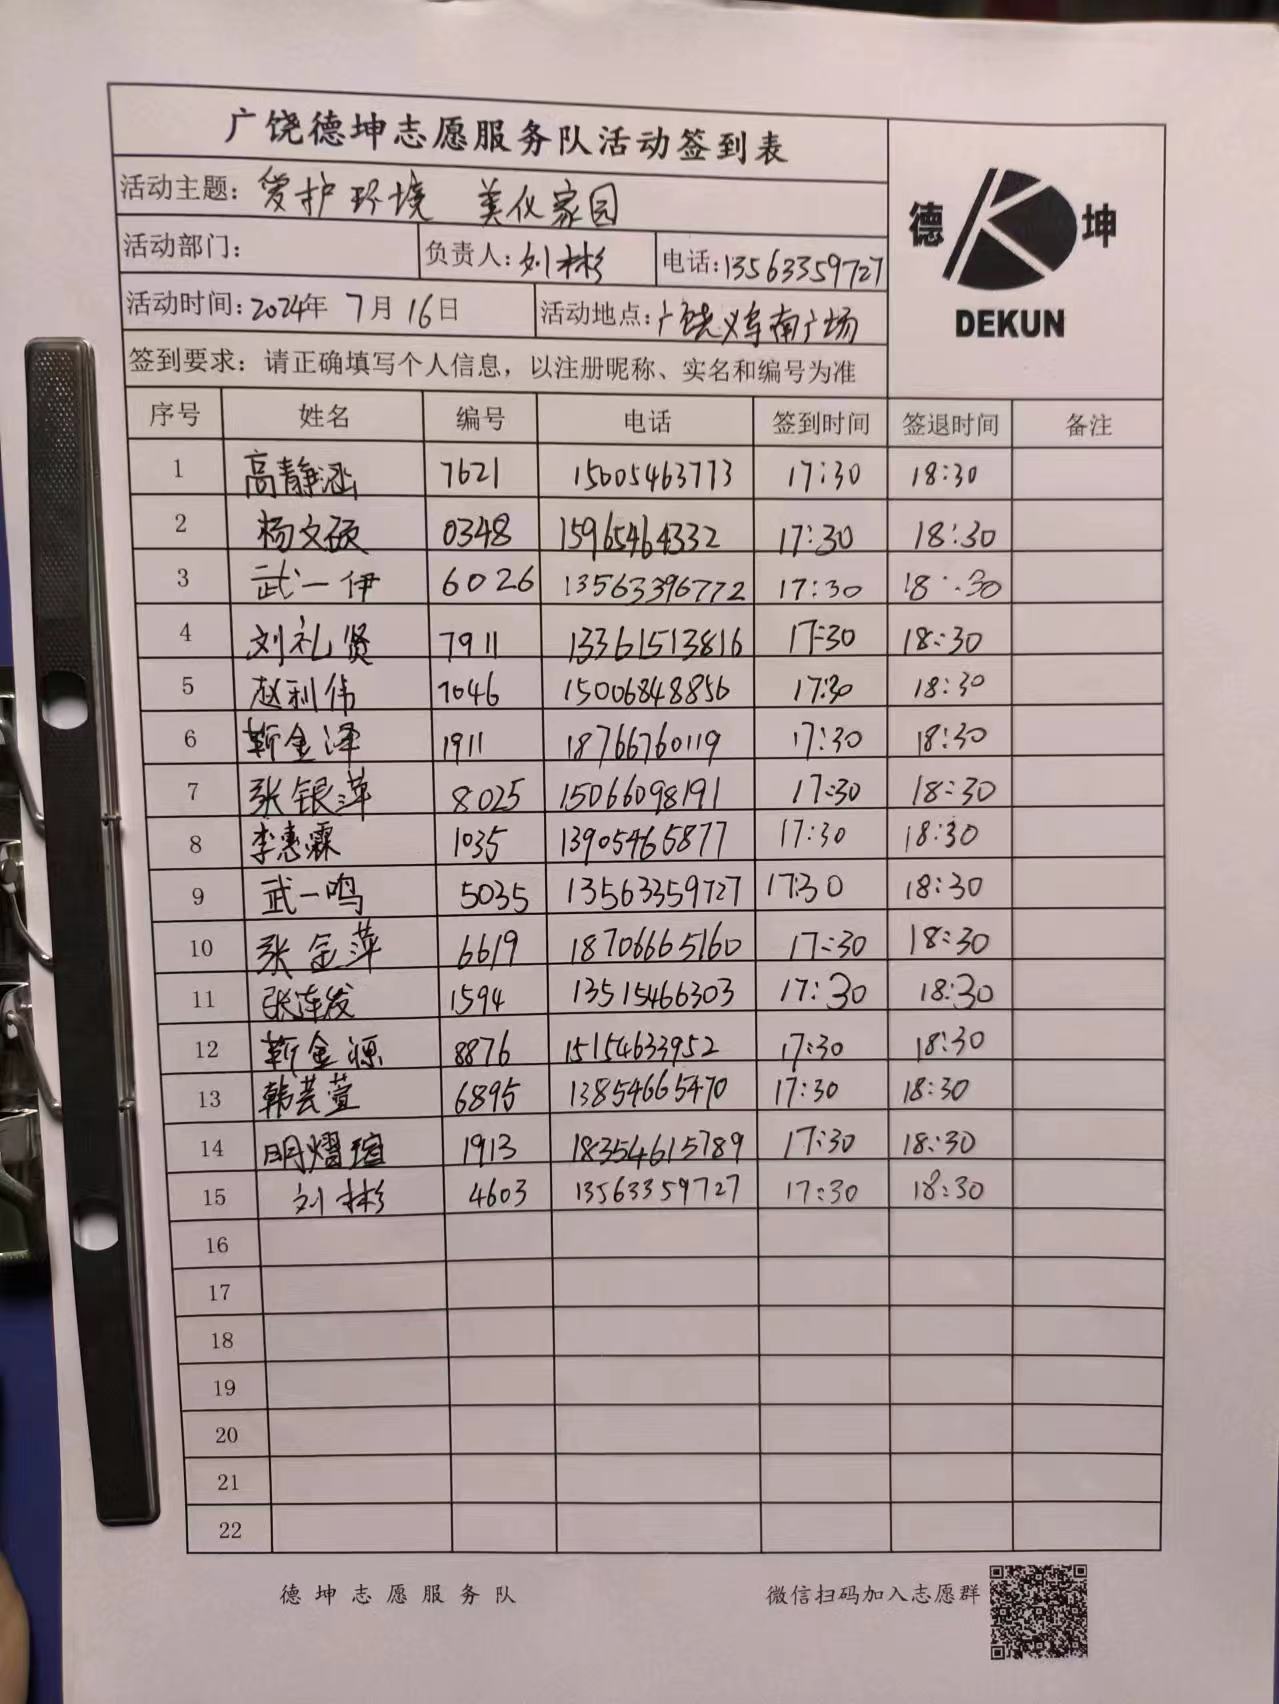 广饶德坤志愿服务队活动签到表
德 坤
DEKUN
活动主题：爱护环境 美化家园
活动部门： 负责人：刘彬 电话：13563359727
活动时间：2024年 7月 16日 活动地点：广饶义乌南广场
签到要求：请正确填写个人信息，以注册昵称、实名和编号为准
序号 姓名 编号 电话 签到时间 签退时间 备注
1 高静涵 7621 15605463773 17:30 18:30
2 杨文硕 0348 15965464332 17:30 18:30
3 武一伊 6026 13563396772 17:30 18:30
4 刘礼贤 7911 13361513816 17:30 18:30
5 赵利伟 7046 15006848856 17:30 18:30
6 靳金泽 1911 18766760119 17:30 18:30
7 张银萍 8025 15066098191 17:30 18:30
8 李惠霖 1035 13905465877 17:30 18:30
9 武一鸣 5035 13563359727 17:30 18:30
10 张金萍 6619 18706665160 17:30 18:30
11 张连发 1594 13515466303 17:30 18:30
12 靳金源 8876 15154633952 17:30 18:30
13 韩芸萱 6895 13854665470 17:30 18:30
14 明熠瑄 1913 18354615789 17:30 18:30
15 刘彬 4603 13563359727 17:30 18:30
16
17
18
19
20
21
22
德坤志愿服务队 微信扫码加入志愿群